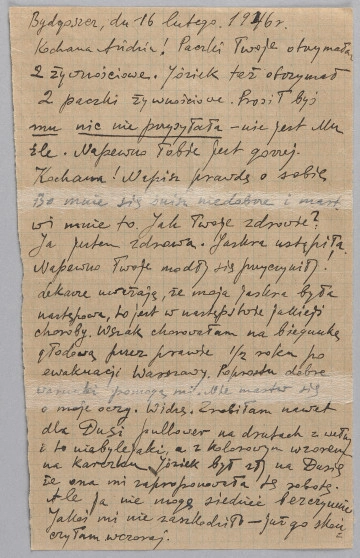 Bydgoszcz, dn 16 lutego. 1946 r.
Kochana! Paczki Twoje otrzymałam
2 żywnościowe. Józiek też otrzymał
2 paczki żywnościowe. Prosił byś
mu nic nie przysyłała – nie jest Mu
źle. Napewno Tobie jest gorzej.
Kochana! Napisz prawdę o sobie
Bo mnie się śnisz niedobrze i mart
wi mnie to. Jak Twoje zdrowie?
Ja jestem zdrowa. Jaskra ustąpiła.
Napewno Twoje modły się przyczyniły!
Lekarze uważają, że moja jaskra była
następowa, to jest w następstwie jakiejś
choroby. Wszak chorowałam na biegunkę
głodową przez prawie 1/2 roku po
ewakuacji Warszawy. Poprostu dobre
warunki pomogły mi. Nie martw się
o moje oczy. Widzę. Zrobiłam nawet
dla Dusi pullower na drutach z wełny
i to nie byle jaki, a z kolorowym wzorem
na karczku. Józiek był zły na Dusię
że ona mi zaproponowała tę robotę.
Ale ja nie mogę siedzieć bezczynnie
Jakoś mi nie zaszkodziło – już go skoń
czyłam wczoraj.